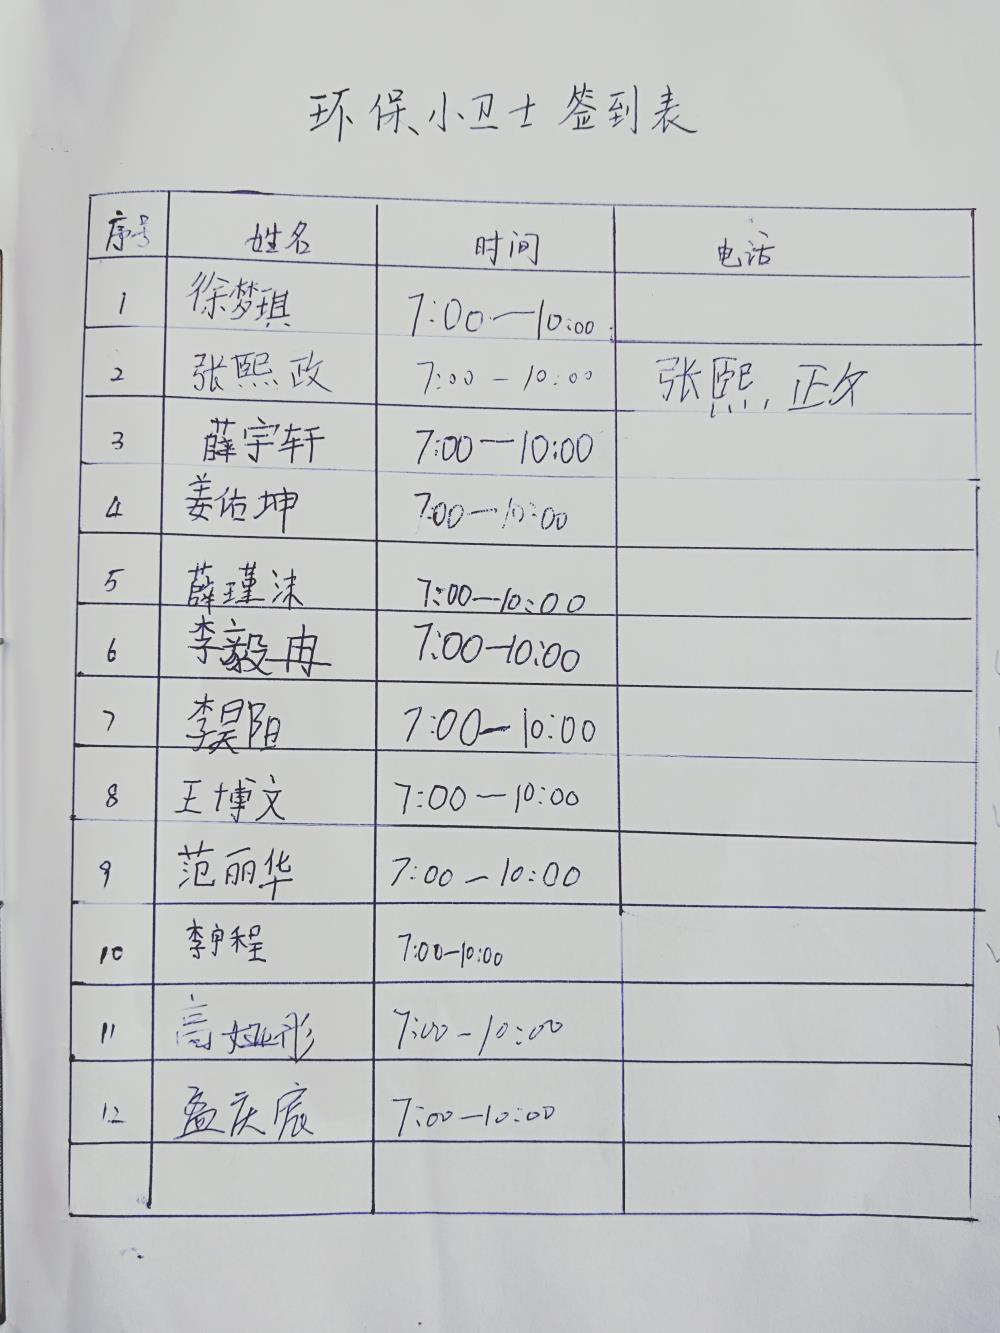 环保小卫士签到表
序号 姓名 时间 电话
1 徐梦琪 7:00—10:00
2 张熙政 7:00-10:00 张熙,正攵
3 薛宇轩 7:00—10:00
4 姜佑坤 7:00—10:00
5 薛瑾沫 7:00—10:00
6 李毅冉 7:00-10:00
7 李昊阳 7:00—10:00
8 王博文 7:00—10:00
9 范丽华 7:00—10:00
10 7:00-10:00
11 高姚彤 7:00-10:00
12 孟庆宸 7:00-10:00